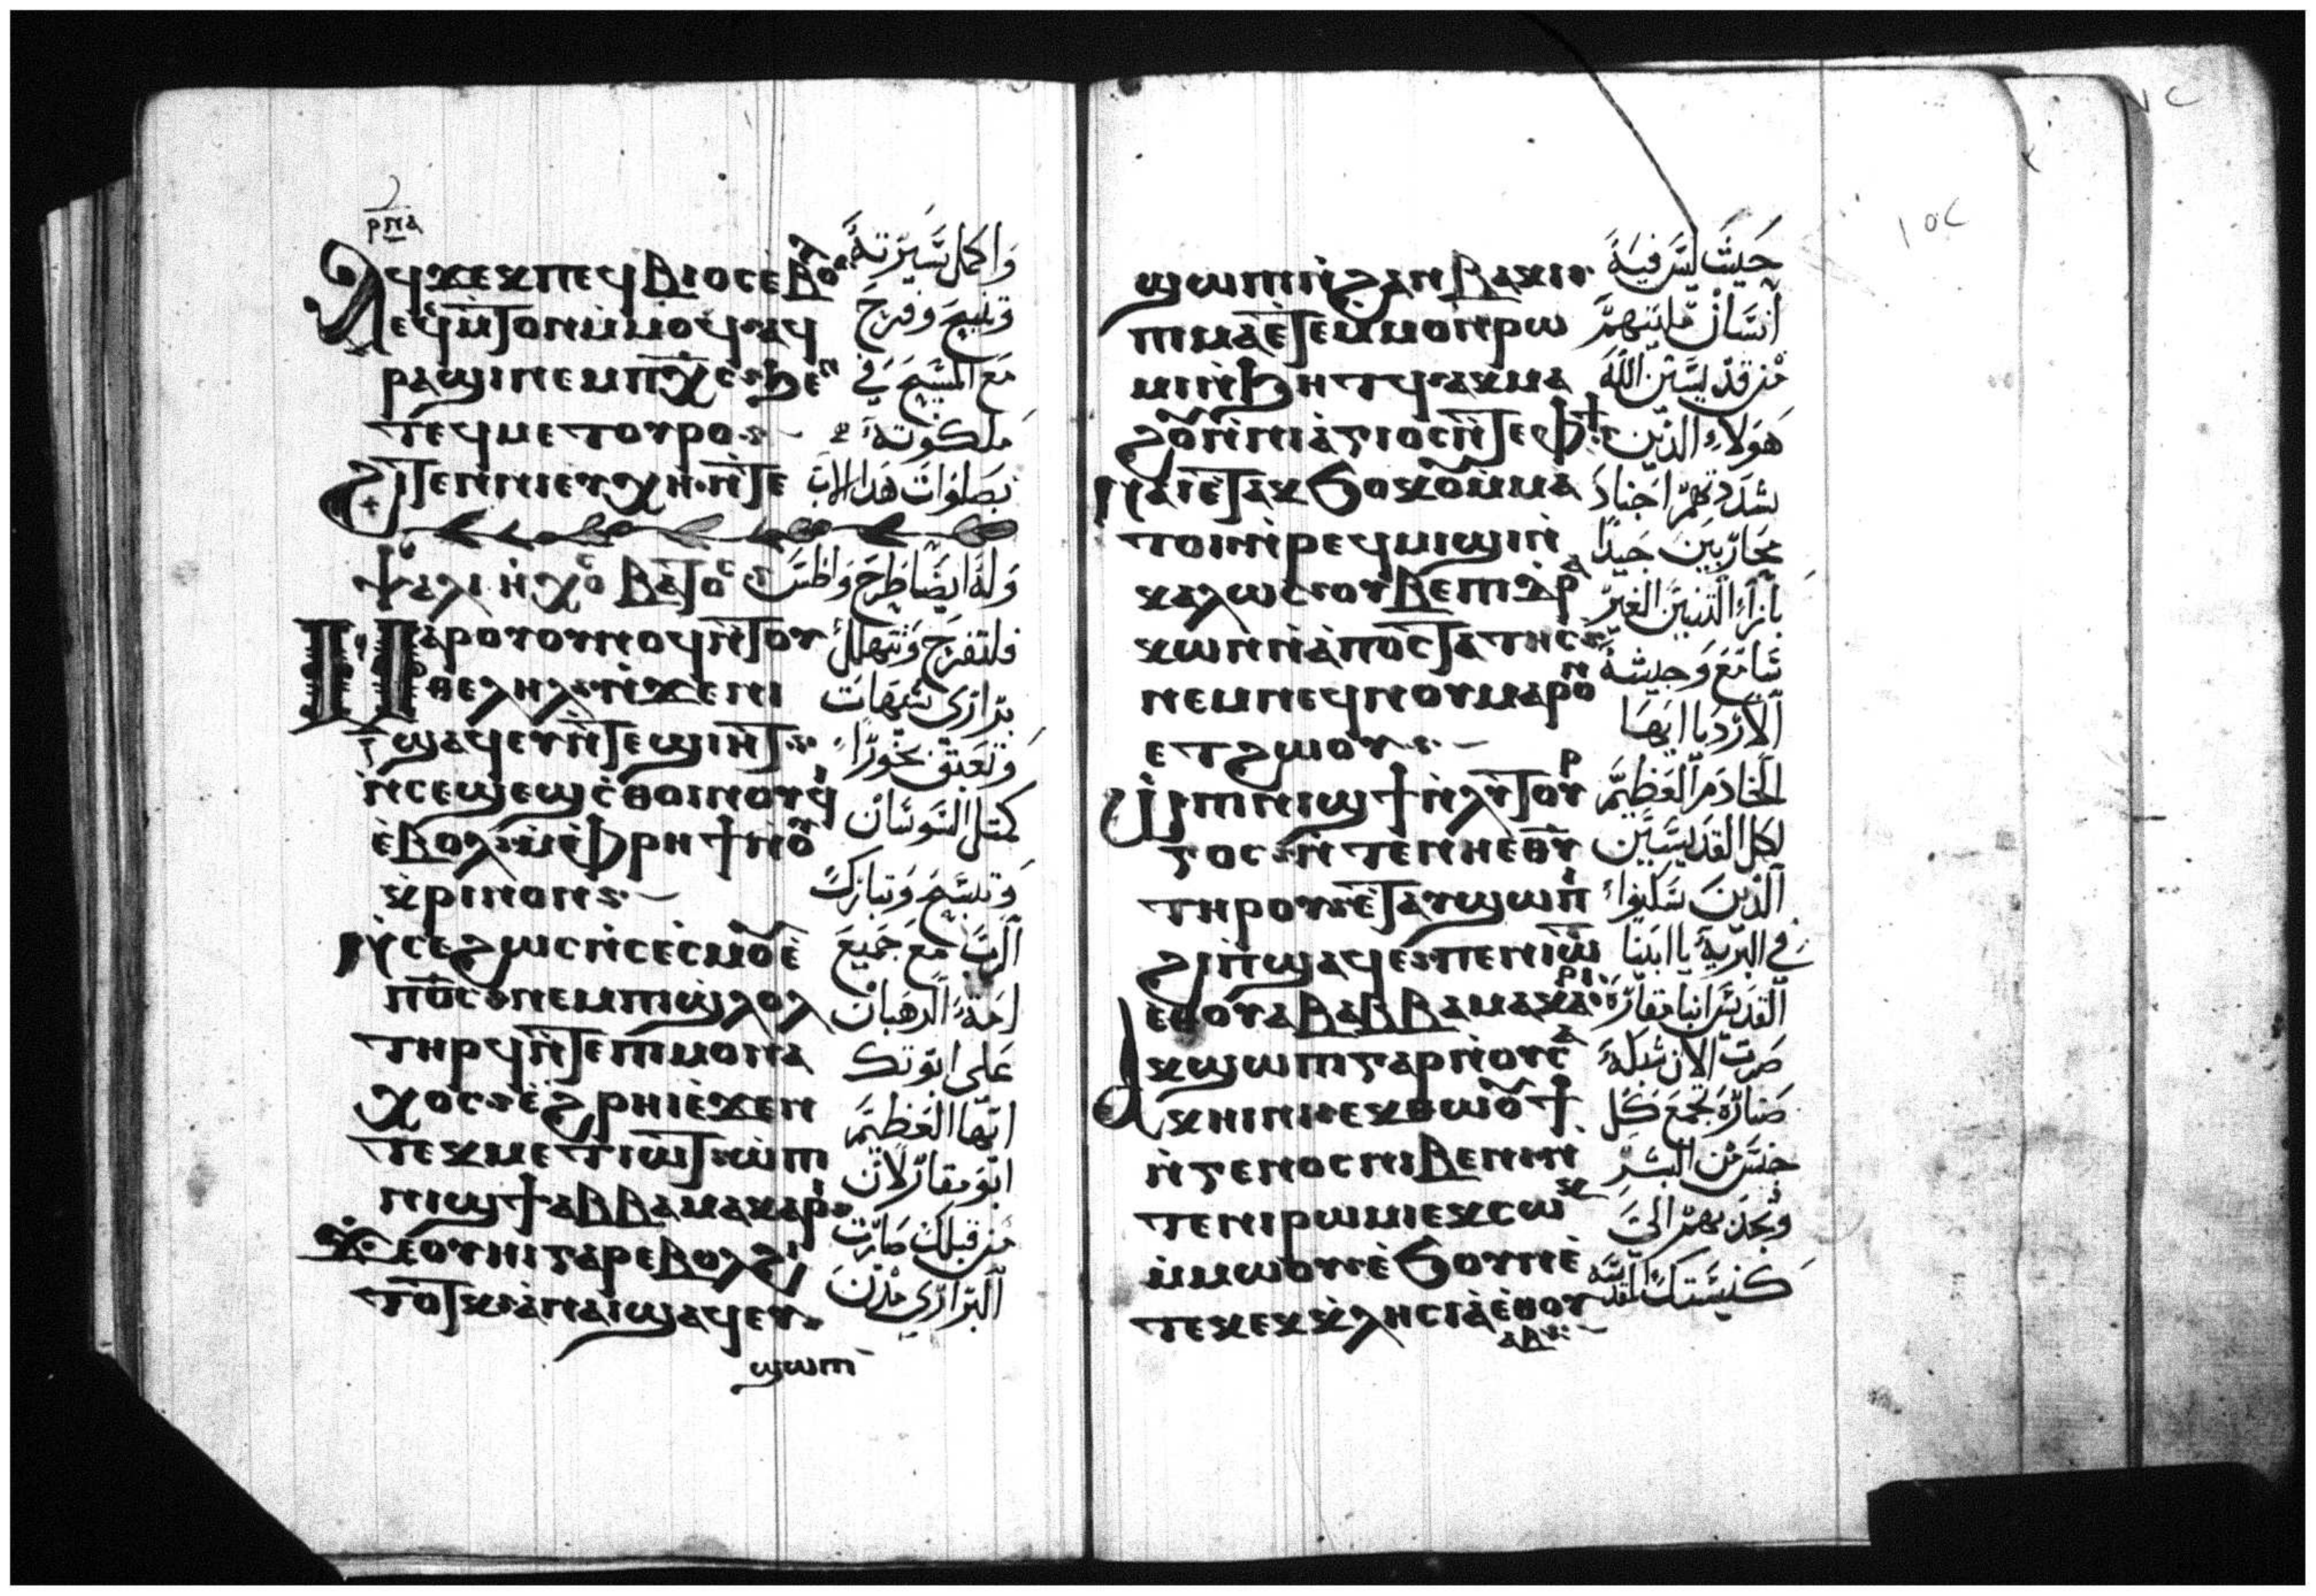 ⲣⲡⲁ
ⲁϥϫⲉⲕⲡⲉϥⲃⲓⲟⲥⲉ̀ⲃⲟⲗ
ⲁϥⲉⲙ̀ⲧⲟⲛⲙ̀ⲙⲟϥ ⲁϥ
ⲣⲁϣⲓⲛⲉⲙⲡⲭ̅ⲥ̅ ϧⲉⲛ
ⲧⲉϥⲙⲉⲧⲟⲩⲣⲟ
ϩⲓⲧⲉⲛⲛⲓⲉⲩⲭⲏ ⲛ̀ⲧⲉ
ⲯⲁⲗⲓ ⲛ̀ⲭⲟ ⲃⲁⲧⲟⲥ
ⲙⲁⲣⲟⲩⲟⲩⲛⲟϥ ⲛ̀ⲧⲟⲩ
ⲑⲉⲗⲏⲗ ⲛ̀ϫⲉⲛⲓ
ϣⲁϥⲉⲩ ⲛ̀ⲧⲉϣⲓⲏⲧ
ⲛ̀ⲥⲉϣⲉϣⲥ̀ⲑⲟⲓⲛⲟⲩϥⲓ
ⲉ̀ⲃⲟⲗ ⲙ̀ⲫⲣⲏϯⲛ̀ⲟⲩ
ⲕ̀ⲣⲓⲛⲟⲛ
ⲛ̀ⲥⲉϩⲱⲥ ⲛ̀ⲥⲉⲥ̀ⲙⲟⲩⲉ̀
ⲡⲟ̅ⲥ̅ ⲛⲉⲙⲡⲓϣ̀ⲗⲟⲗ
ⲧⲏⲣϥ ⲛ̀ⲧⲉⲡⲓⲙⲟⲛⲁ
ⲭⲟⲥ ⲉ̀ϩⲣⲏⲓⲉ̀ϫⲉⲛ
ⲧⲉⲕⲙⲉⲧⲓⲱⲧ ⲱ̀ⲡⲓ
ⲛⲓϣϯⲁⲃⲃⲁⲙⲁⲕⲁⲣⲓ
ϫⲉⲟⲩⲏⲓⲅⲁⲣⲉⲃⲟⲗϩⲓ
ⲧⲟⲧⲕ ⲁ̀ⲛⲁⲓϣⲁϥⲉⲩ
ϣⲱⲡⲓ
واكمل سيرته
وتنيح وفرح
مع المسيح في
ملكوته
بصلوات هدا الاب
وله ايضا طرح واطس
فلتفرح وتتهلل
براري شيهات
وتعبق بخورا
كمتل السوسان
وتسبح وتبارك
الرب مع جميع
امة الرهبان
على ابوتك
ايها العظيم
ابو مقار لان
من قبلك صارت
البراري مدن
ϣⲱⲡⲓⲛ̀ϩⲁⲛⲃⲁⲕⲓ
ⲡⲓⲙⲁⲉ̀ⲧⲉⲙⲙⲟⲛⲣⲱ
ⲙⲓⲛ̀ϧⲏⲧϥ ⲁⲕⲙⲁ
ϩⲟⲩⲛ̀ⲛⲓⲁ̀ⲅⲓⲟⲥⲛ̀ⲧⲉⲫϯ
ⲛⲁⲓⲉ̀ⲧⲁⲕϭⲟⲕⲟⲩⲙ̀ⲙⲁ
ⲧⲟⲓⲛ̀ⲣⲉϥⲙⲓϣⲓⲛ̀
ⲕⲁⲗⲱⲥ ⲟⲩⲃⲉⲡⲓⲇ̀ⲣⲁ
ⲕⲱⲛⲛ̀ⲁ̀ⲡⲟⲥⲧⲁⲧⲏⲥ
ⲛⲉⲙⲛⲉϥⲛⲟⲩⲙⲁⲣⲟⲛ
ⲉⲧϩⲱⲟⲩ
ⲱ̀ⲡⲓⲛⲓϣϯⲛ̀ⲗⲓⲧⲟⲩⲣ
ⲅⲟⲥ ⲛ̀ⲧⲉⲛⲏⲉⲑⲩ
ⲧⲏⲣⲟⲩ ⲉ̀ⲧⲁⲩϣⲱⲡⲓ
ϩⲓⲡϣⲁϥⲉ ⲡⲉⲛⲓⲱⲧ
ⲉⲑⲟⲩⲁⲃⲁⲃⲃⲁⲙⲁⲕⲁⲣⲓ
ⲁⲕϣⲱⲡⲓⲅⲁⲣⲛ̀ⲟⲩⲥⲁ
ⲕⲏⲛⲓ ⲉⲕⲑⲱⲟⲩϯ
ⲛ̀ⲅⲉⲛⲟⲥⲛⲓⲃⲉⲛⲛ̀
ⲧⲉⲛⲓⲣⲱⲙⲓⲉⲕⲥⲱⲕ
ⲙ̀ⲙⲱⲟⲩ ⲉ̀ϧⲟⲩⲛⲉ̀
ⲧⲉⲕⲉⲕⲕ̀ⲗⲏⲥⲓⲁ̀ⲉ̀ⲑⲟⲩ
ⲁⲃ
حيث ليس فيه
انسان مليتهم
من قديسين الله
هولاء الدين
شددتهم اجنادا
محاربين جيدا
بازاء التنين الغير
وجيشه
الاردياء ايها
الخادم العظيم
لكل القديسين
الدين سكنوا
في البرية يا ابينا
القديس انبا مقار
صرت الان شبكة
صنارة تجمع كل
جنس من البشر
وتجدبهم الى
كنيستك المقدسة